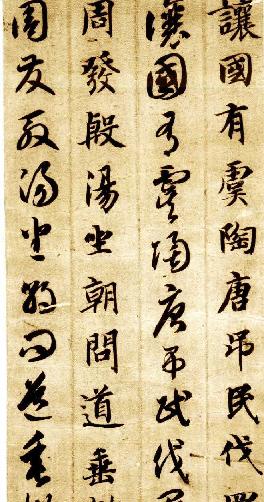 讓國有虞陶唐吊民伐
讓國有虞陶唐吊民伐
周發殷湯坐朝問道垂
周發殷湯坐朝問道垂